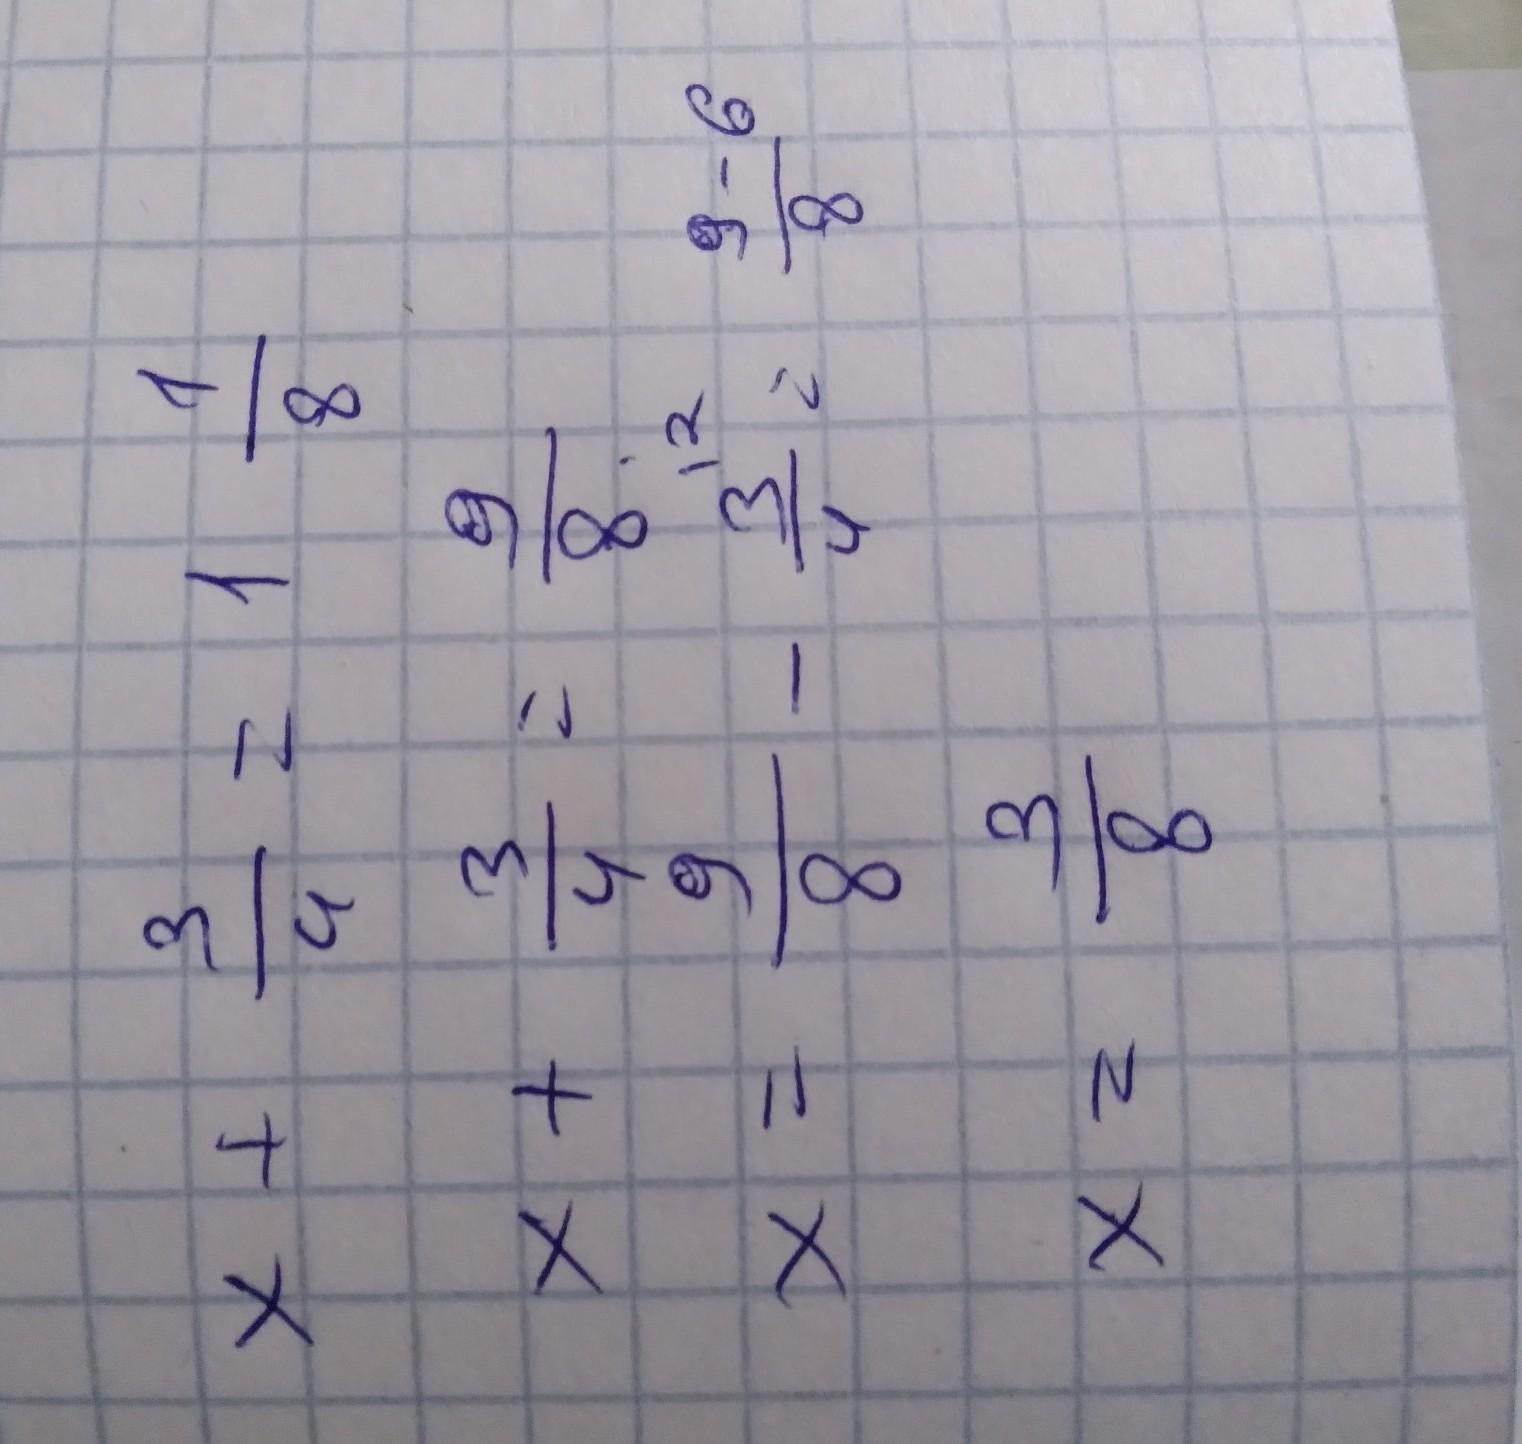 x + 3/4 = 1 1/8
x + 3/4 = 9/8
x = 9/8 - 3/4 ^{12} = (9 - 6)/8
x = 3/8